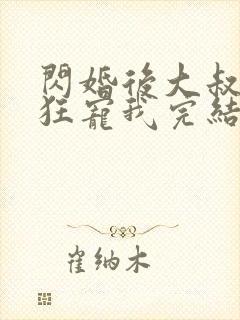 閃婚後大叔
狂寵我完結
崔纳木